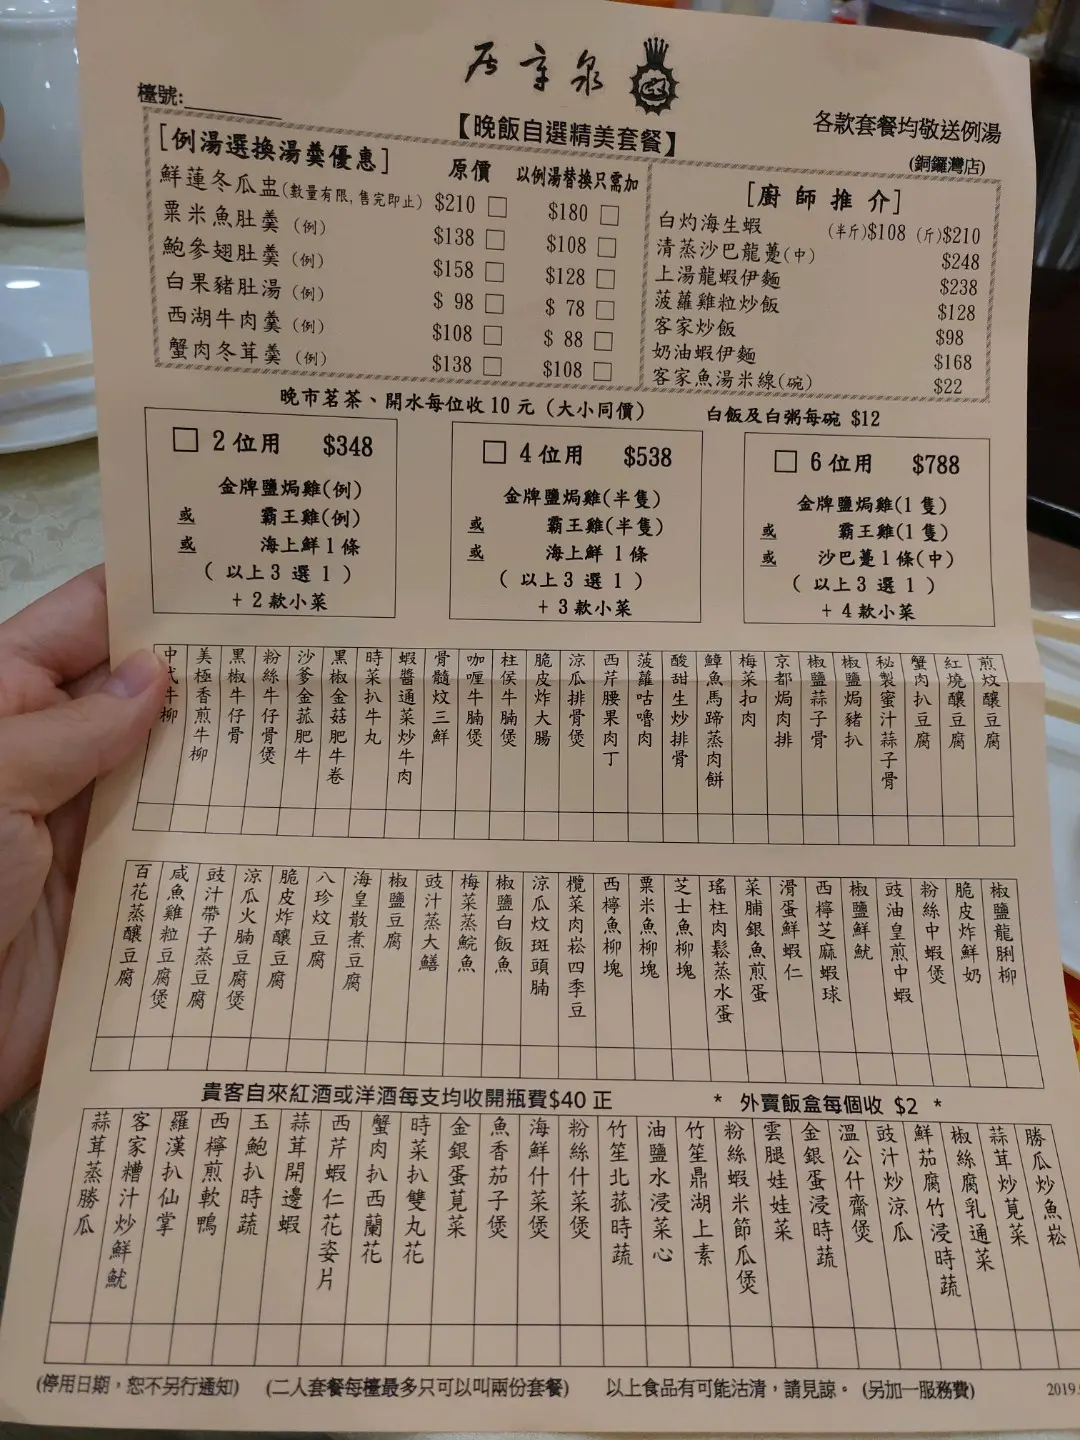 泉章居
檯號:
【晚飯自選精美套餐】
各款套餐均敬送例湯
(銅鑼灣店)
[例湯選換湯羹優惠]
原價 以例湯替換只需加
鮮蓮冬瓜盅(數量有限,售完即止) $210 □ $180 □
粟米魚肚羹 (例) $138 □ $108 □
鮑參翅肚羹 (例) $158 □ $128 □
白果豬肚湯 (例) $ 98 □ $ 78 □
西湖牛肉羹 (例) $108 □ $ 88 □
蟹肉冬茸羹 (例) $138 □ $108 □
[廚師推介]
白灼海生蝦 (半斤)$108 (斤)$210
清蒸沙巴龍躉(中) $248
上湯龍蝦伊麵 $238
菠蘿雞粒炒飯 $128
客家炒飯 $98
奶油蝦伊麵 $168
客家魚湯米線(碗) $22
晚市茗茶、開水每位收10元(大小同價) 白飯及白粥每碗 $12
□ 2位用 $348
金牌鹽焗雞(例)
或 霸王雞(例)
或 海上鮮1條
(以上3選1)
+2款小菜
□ 4位用 $538
金牌鹽焗雞(半隻)
或 霸王雞(半隻)
或 海上鮮1條
(以上3選1)
+3款小菜
□ 6位用 $788
金牌鹽焗雞(1隻)
或 霸王雞(1隻)
或 沙巴躉1條(中)
(以上3選1)
+4款小菜
煎炆釀豆腐
紅燒釀豆腐
蟹肉扒豆腐
秘製蜜汁蒜子骨
椒鹽焗豬扒
椒鹽蒜子骨
京都焗肉排
梅菜扣肉
鱆魚馬蹄蒸肉餅
酸甜生炒排骨
菠蘿咕嚕肉
西芹腰果肉丁
涼瓜排骨煲
脆皮炸大腸
柱侯牛腩煲
咖喱牛腩煲
骨髓炆三鮮
蝦醬通菜炒牛肉
時菜扒牛丸
黑椒金菇肥牛卷
沙爹金菰肥牛
粉絲牛仔骨煲
黑椒牛仔骨
美極香煎牛柳
中式牛柳
椒鹽龍脷柳
脆皮炸鮮奶
粉絲中蝦煲
豉油皇煎中蝦
椒鹽鮮魷
西檸芝麻蝦球
滑蛋鮮蝦仁
菜脯銀魚煎蛋
瑤柱肉鬆蒸水蛋
芝士魚柳塊
粟米魚柳塊
西檸魚柳塊
欖菜肉崧四季豆
涼瓜炆斑頭腩
椒鹽白飯魚
梅菜蒸鯇魚
豉汁蒸大鱔
椒鹽豆腐
海皇散煮豆腐
八珍炆豆腐
脆皮炸釀豆腐
涼瓜火腩豆腐煲
豉汁帶子蒸豆腐
咸魚雞粒豆腐煲
百花蒸釀豆腐
貴客自來紅酒或洋酒每支均收開瓶費$40正 * 外賣飯盒每個收 $2 *
勝瓜炒魚崧
蒜茸炒莧菜
椒絲腐乳通菜
鮮茄腐竹浸時蔬
豉汁炒涼瓜
溫公什齋煲
金銀蛋浸時蔬
雲腿娃娃菜
粉絲蝦米節瓜煲
竹笙鼎湖上素
油鹽水浸菜心
竹笙北菰時蔬
粉絲什菜煲
海鮮什菜煲
魚香茄子煲
金銀蛋莧菜
時菜扒雙丸花
蟹肉扒西蘭花
西芹蝦仁花姿片
蒜茸開邊蝦
玉鮑扒時蔬
西檸煎軟鴨
羅漢扒仙掌
客家糟汁炒鮮魷
蒜茸蒸勝瓜
(停用日期,恕不另行通知) (二人套餐每檯最多只可以叫兩份套餐) 以上食品有可能沽清,請見諒。 (另加一服務費)
2019.